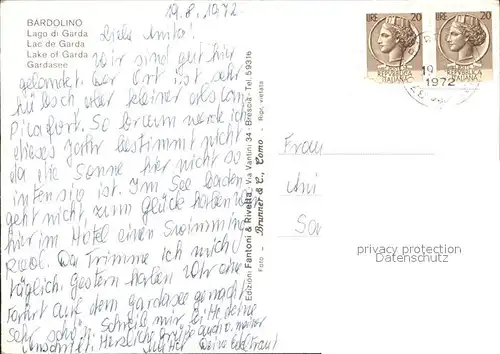 19.8.1972
BARDOLINO
Lago di Garda
Lac de Garda
Lake of Garda
Gardasee
Liebe Anita!
Wir sind gut hier
gelandet. Der Ort ist sehr
hübsch aber kleiner als Can
Picafort. So braun werde ich
dieses Jahr bestimmt nicht
da die Sonne hier nicht so
intensiv ist. Im See baden
geht nicht, zum Glück haben wir
hier im Hotel einen Swimming
Pool. Da Trimme ich mich
täglich. Gestern haben wir eine
Fahrt auf dem Gardasee gemacht
sehr schön. Schreib mir bitte deine
Anschrift. Herzliche Grüße auch v. meiner
Mutter Deine
Edizioni Fantoni & Rivetta - Via Vantini 34 - Brescia - Tel. 59316
Foto - Brunner & C., Como - Ripr. vietata
LIRE 20
REPUBBLICA
ITALIANA
LIRE 20
REPUBBLICA
ITALIANA
19
1972
Frau
privacy protection
Datenschutz